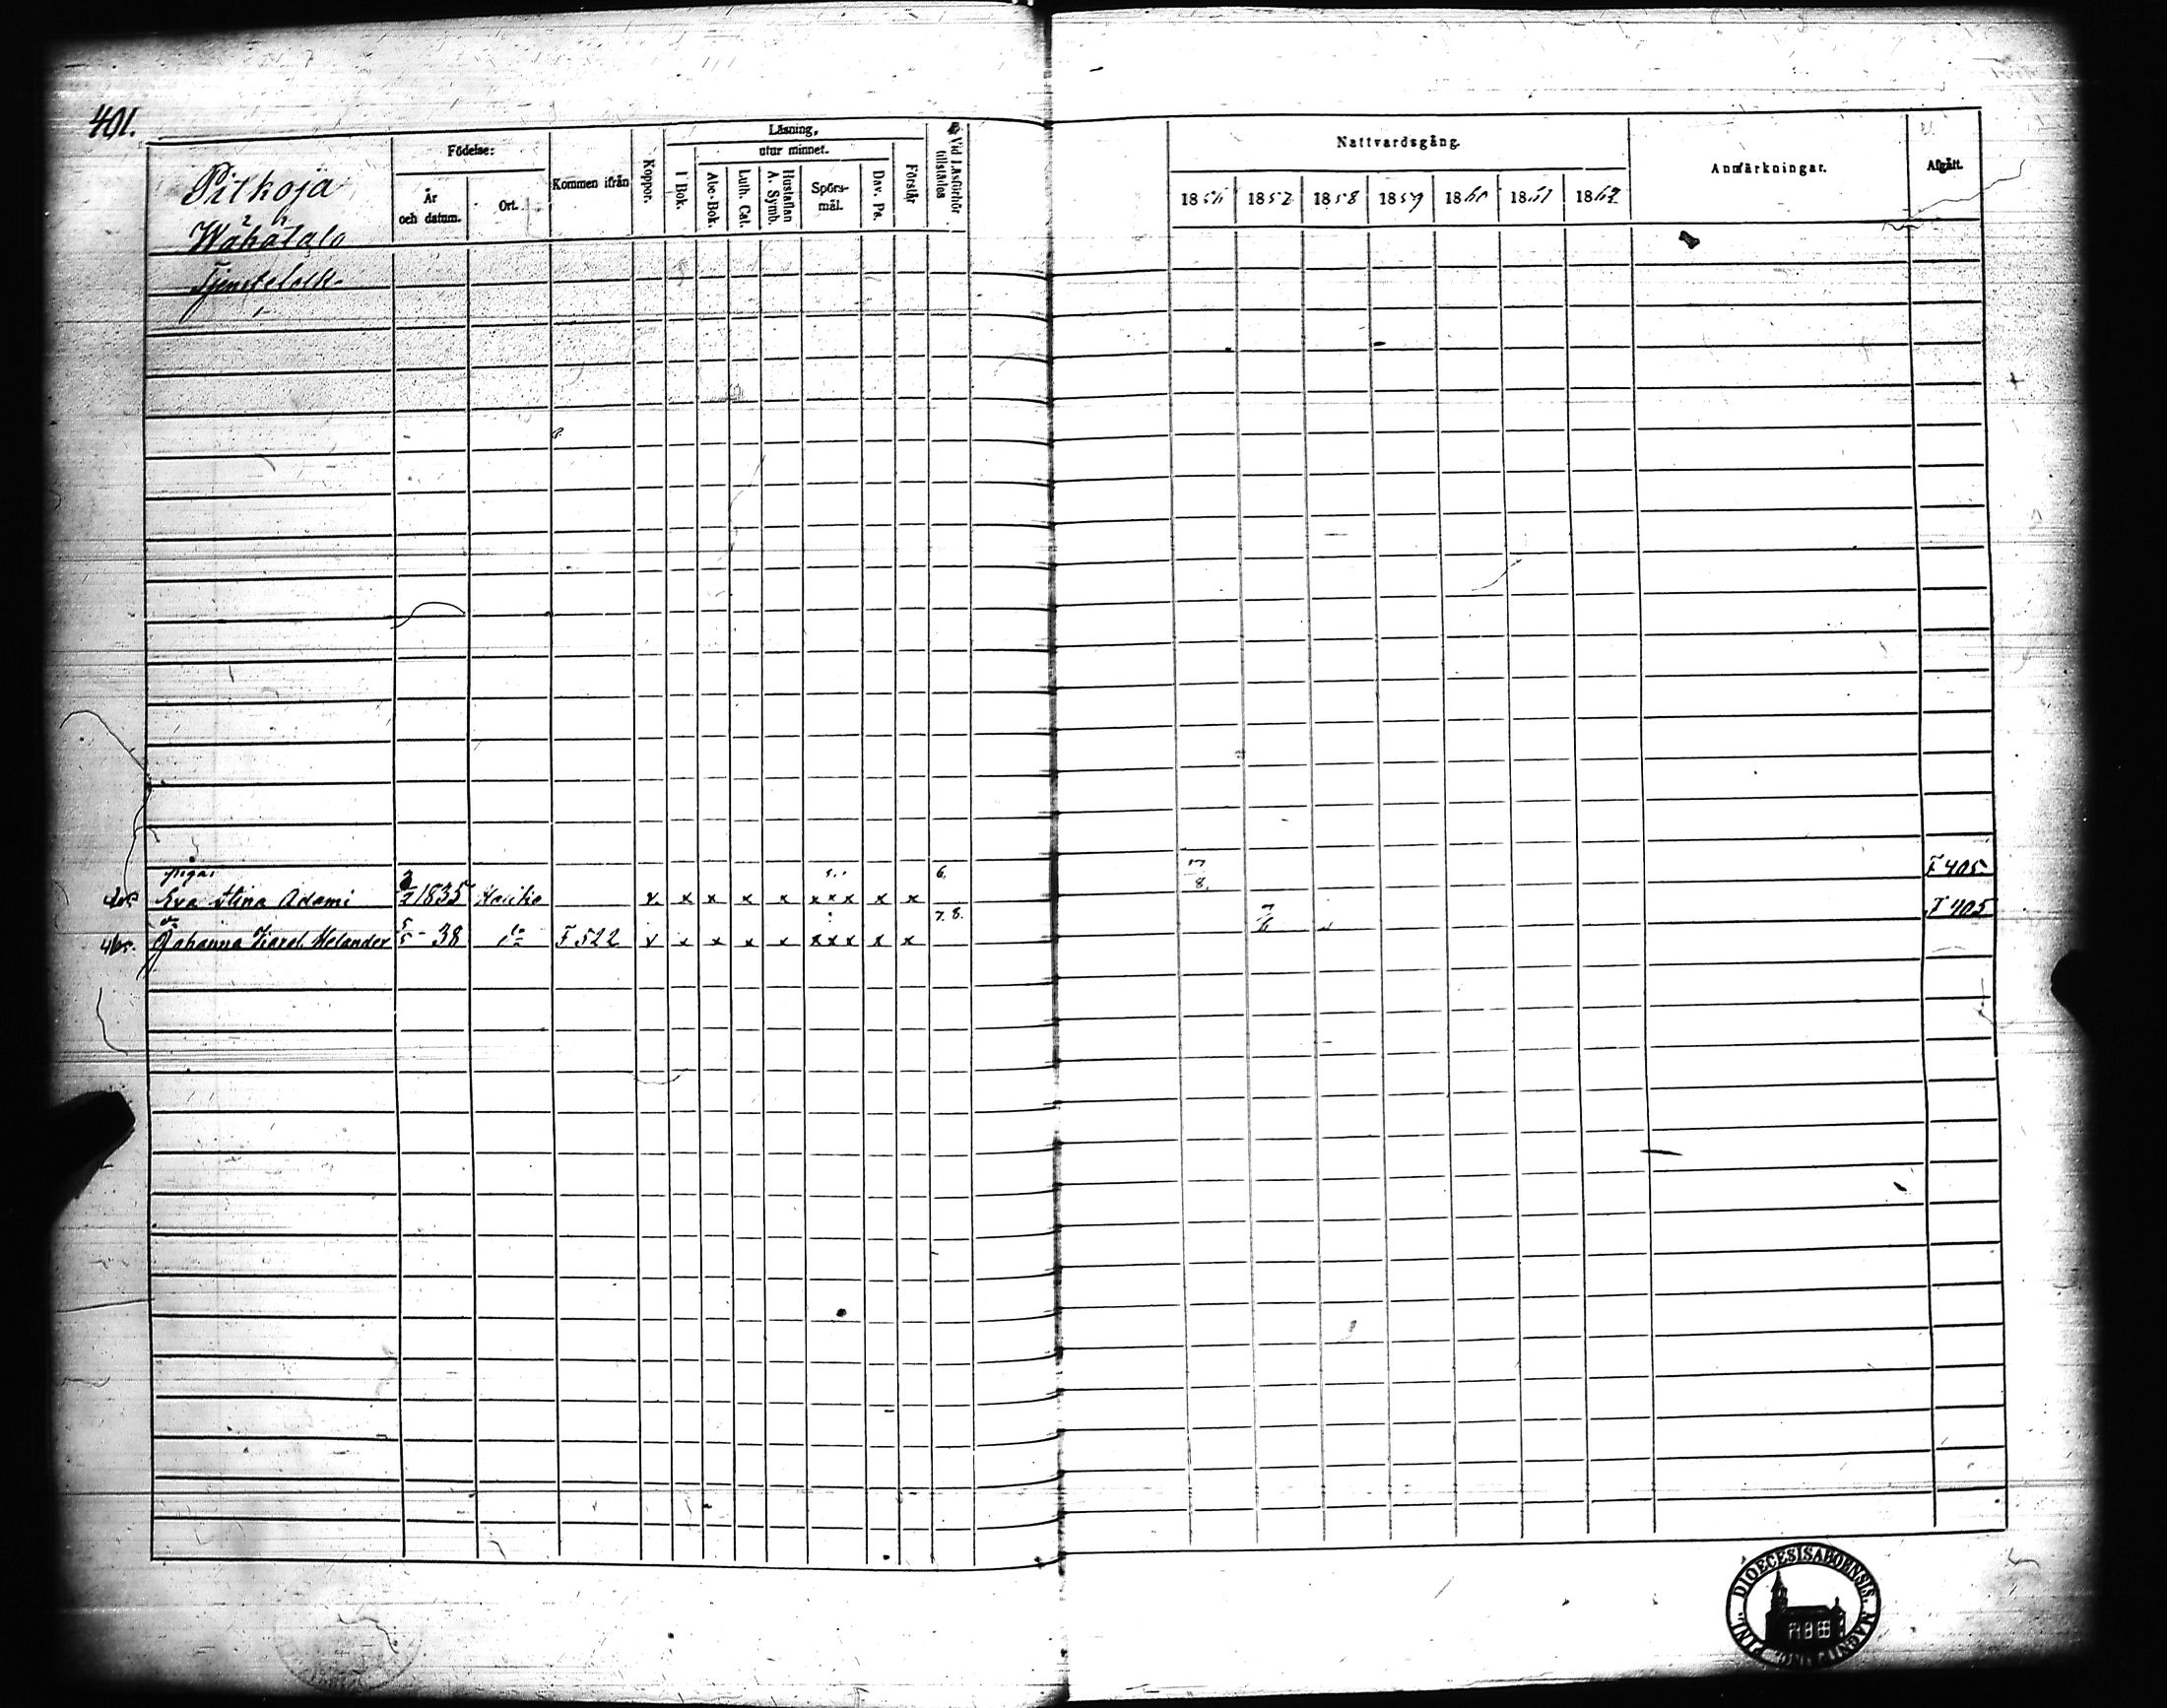 401.
Pitkoja
Wähätalo
Tjenstefolk
Födelse:
År och datum.
Ort.
Kommen ifrån
Koppor.
Läsning,
utur minnet.
I Bok.
Abc-Bok.
Luth. Cat.
Hustaflan A. Symb.
Spörs-mål.
Dav. Ps.
Förstår
Vid Läsförhör tillstädes
Nattvardsgång.
1856 1857 1858 1859 1860 1861 1862
Anmärkningar.
Afgått.
piga
Eva Stina Adami 1835 v x x x x x x x x x 6. 7/8. F 405
Johanna Karol. Helander 5/5 - 38 do F 522 v x x x x x x x x x 7. 8. F 405
DIOECESIS ABOENSIS